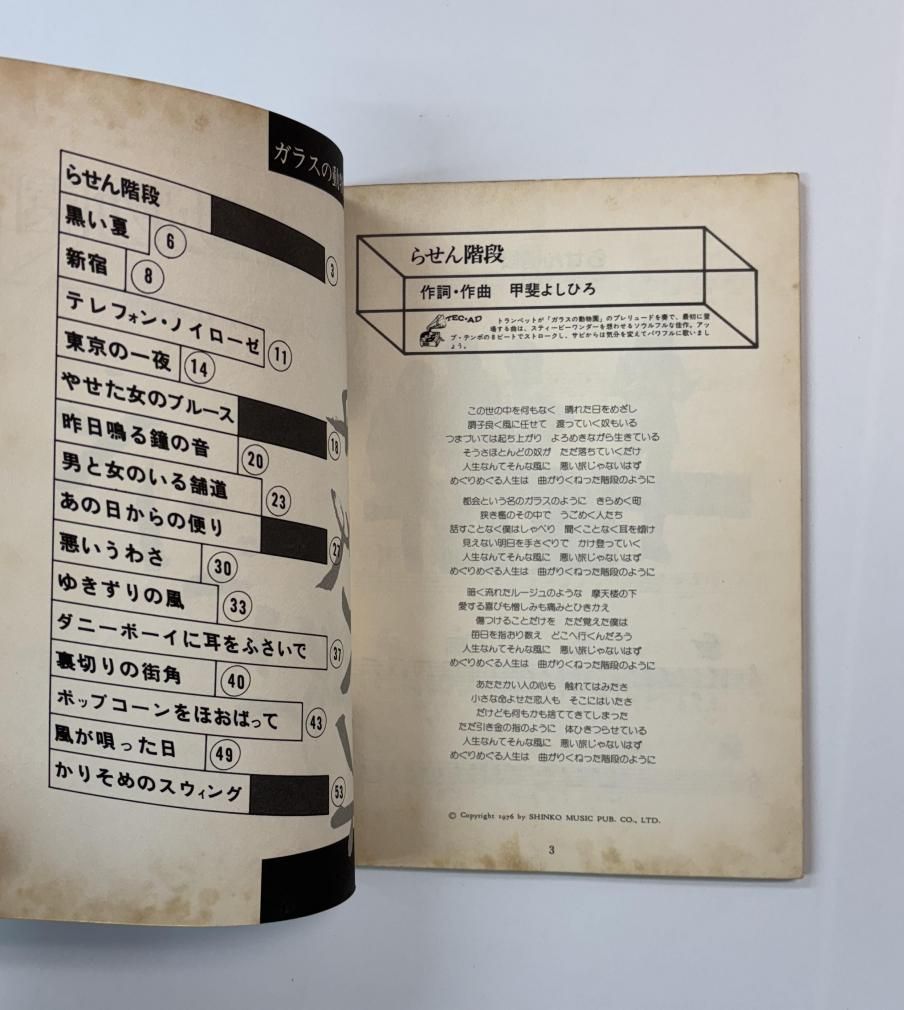 ガラスの動
らせん階段
3
黒い夏
6
新宿
8
テレフォン・ノイローゼ
11
東京の一夜
14
やせた女のブルース
18
昨日鳴る鐘の音
20
男と女のいる舗道
23
あの日からの便り
27
悪いうわさ
30
ゆきずりの風
33
ダニーボーイに耳をふさいで
37
裏切りの街角
40
ポップコーンをほおばって
43
風が唄った日
49
かりそめのスウィング
53
らせん階段
作詞・作曲 甲斐よしひろ
TEC・AD
トランペットが「ガラスの動物園」のプレリュードを奏で、最初に登
場する曲は、スティービーワンダーを想わせるソウルフルな佳作。アッ
プ・テンポの8ビートでストロークし、サビからは気分を変えてパワフルに歌いまし
ょう。
この世の中を何もなく 晴れた日をめざし
調子良く風に任せて 渡っていく奴もいる
つまづいては起ち上がり よろめきながら生きている
そうさほとんどの奴が ただ落ちていくだけ
人生なんてそんな風に 悪い旅じゃないはず
めぐりめぐる人生は 曲がりくねった階段のように
都会という名のガラスのように きらめく町
狭き檻のその中で うごめく人たち
話すことなく僕はしゃべり 聞くことなく耳を傾け
見えない明日を手さぐりで かけ登っていく
人生なんてそんな風に 悪い旅じゃないはず
めぐりめぐる人生は 曲がりくねった階段のように
暗く流れたルージュのような 摩天楼の下
愛する喜びも憎しみも痛みとひきかえ
傷つけることだけを ただ覚えた僕は
毎日を指おり数え どこへ行くんだろう
人生なんてそんな風に 悪い旅じゃないはず
めぐりめぐる人生は 曲がりくねった階段のように
あたたかい人の心も 触れてはみたさ
小さな命よせた恋人も そこにはいたさ
だけども何もかも捨ててきてしまった
ただ引き金の指のように 体ひきつらせている
人生なんてそんな風に 悪い旅じゃないはず
めぐりめぐる人生は 曲がりくねった階段のように
© Copyright 1976 by SHINKO MUSIC PUB. CO., LTD.
3